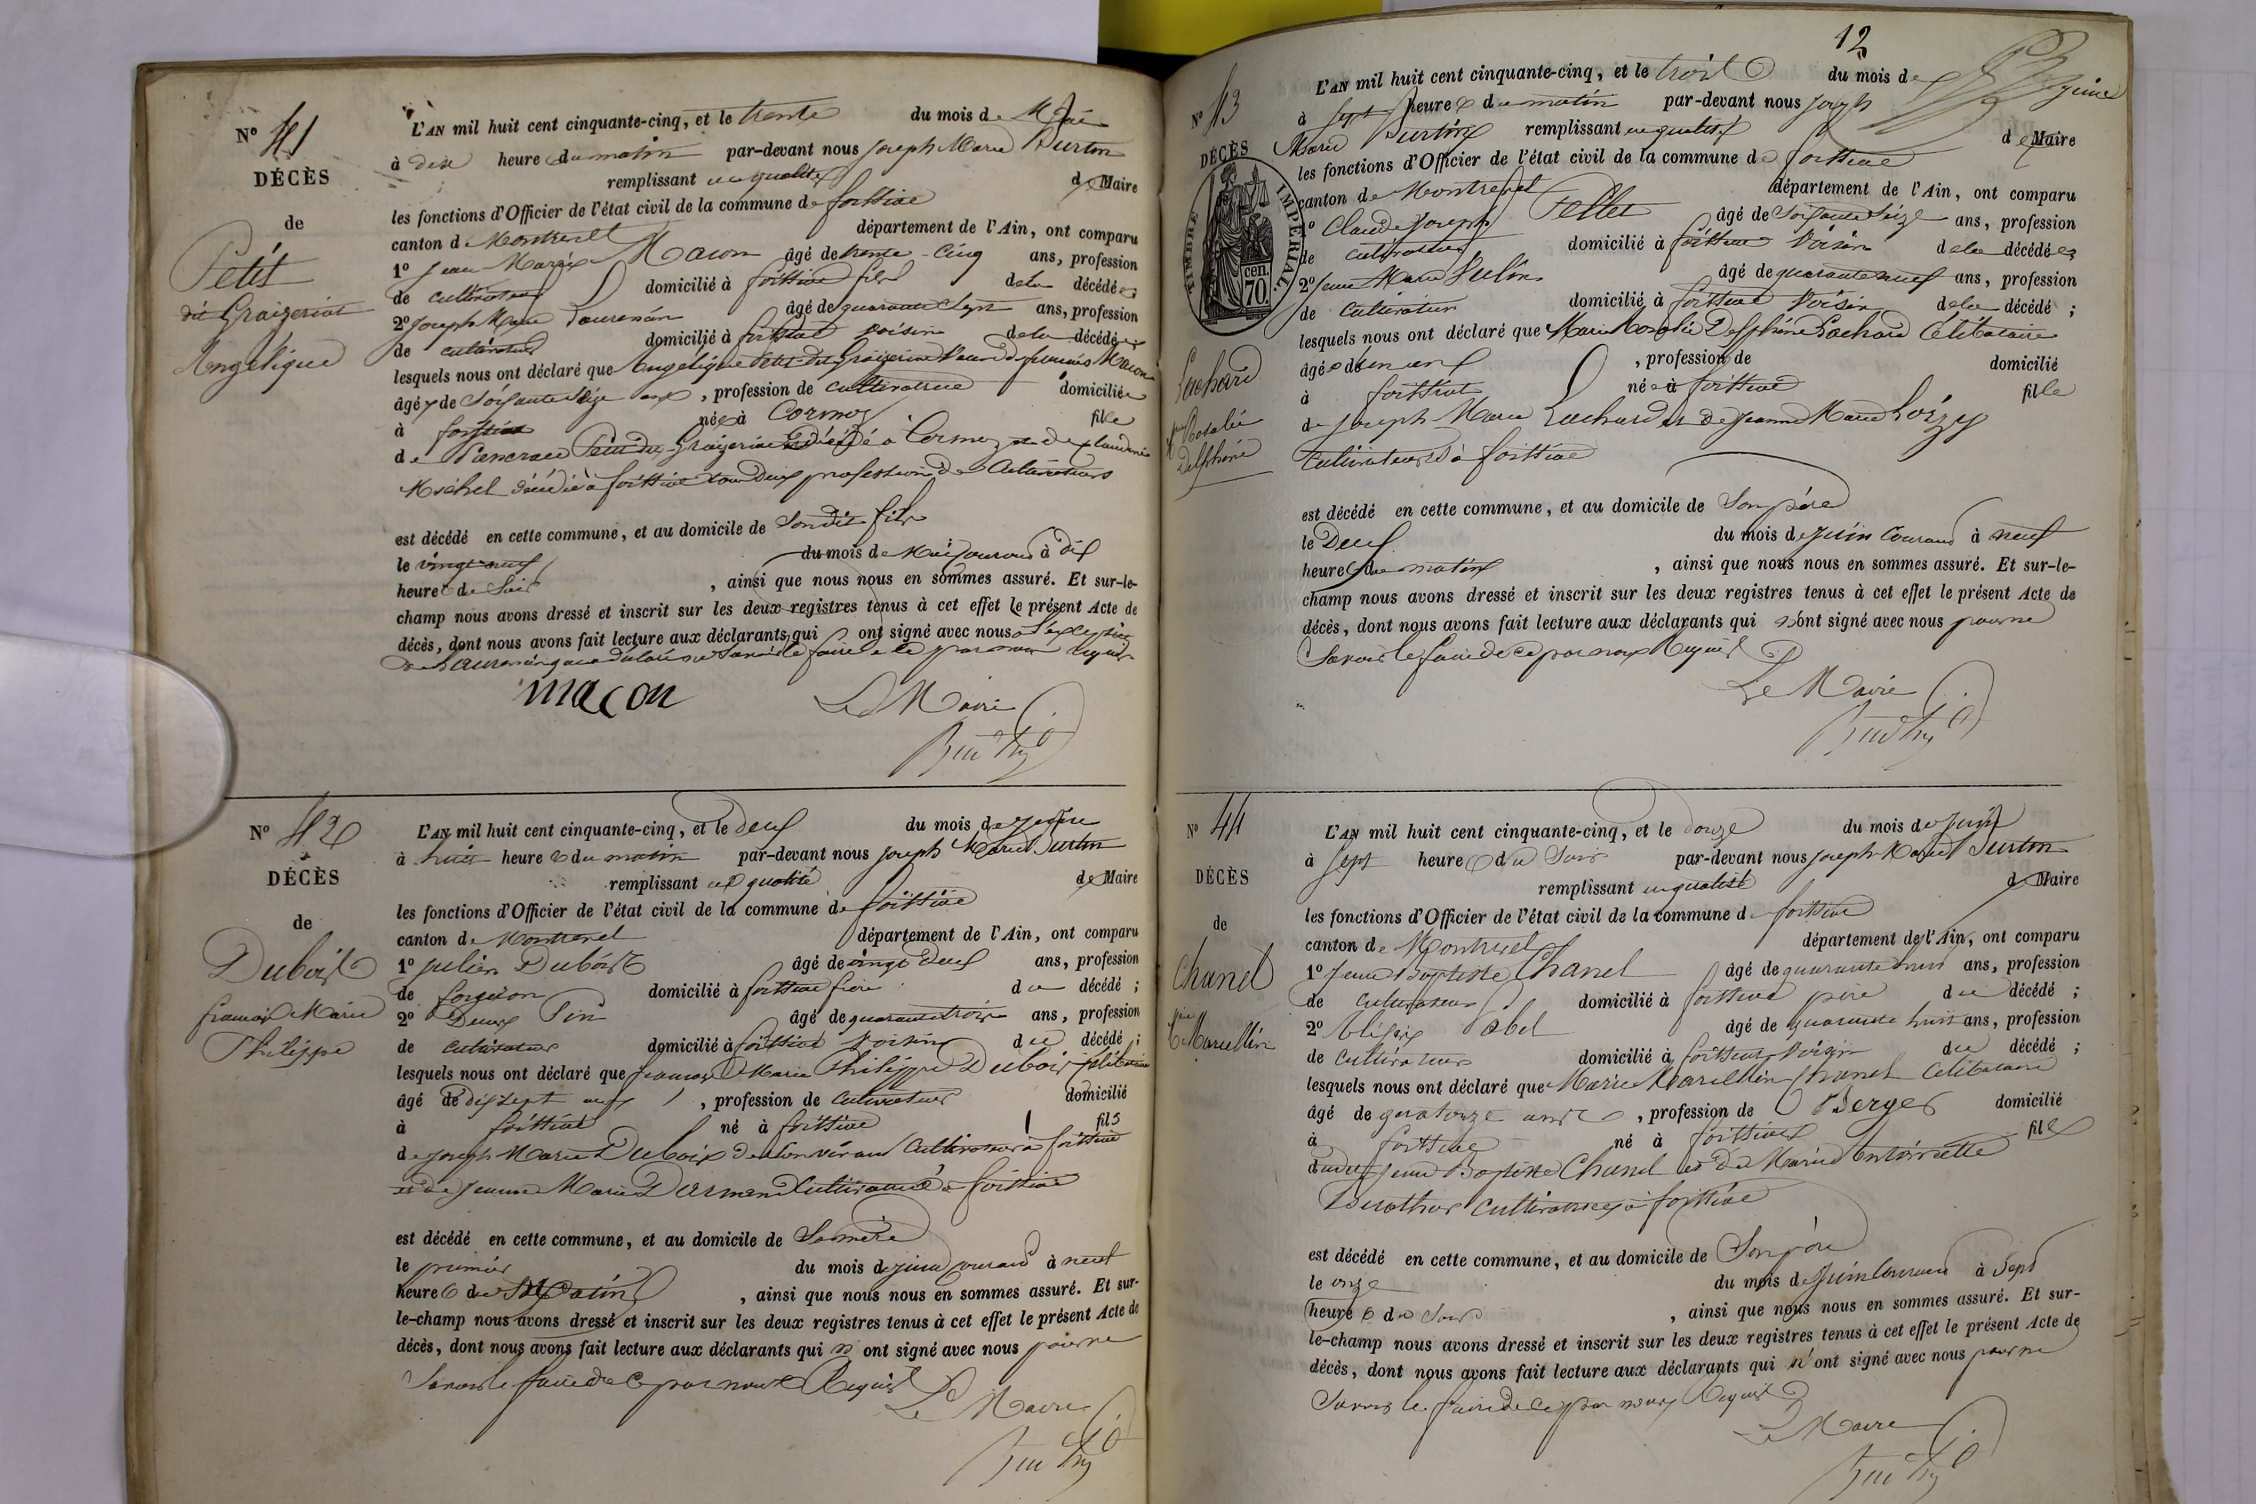 N° 41
DÉCÈS
de
Petit
dit Graizeriat
Angélique
L'AN mil huit cent cinquante-cinq, et le trente du mois de Mai
à dix heures du matin par-devant nous Joseph Marie Burtin
remplissant en qualité de Maire
les fonctions d'Officier de l'état civil de la commune de foissiat
canton de Montrevel département de l'Ain, ont comparu
1° Jean Marie Macon âgé de trente-cinq ans, profession
de cultivateur domicilié à foissiat fils de la décédée;
2° Joseph Marie Laurencin âgé de quarante sept ans, profession
de cultivateur domicilié à foissiat voisin de la décédée
lesquels nous ont déclaré que Angélique Petit dit Graizeriat Macon
âgée de Soixante Seize ans, profession de cultivatrice domiciliée
à foissiat née à Cormoz fille
de Pancrace Petit dit Graizeriat décédé à Cormoz et de Claudine
Michel décédée à foissiat tous deux profession de Cultivateurs
est décédé en cette commune, et au domicile de Son dit fils
le vingt neuf du mois de Mai Courant à dix
heures du Soir, ainsi que nous nous en sommes assuré. Et sur-le-
champ nous avons dressé et inscrit sur les deux registres tenus à cet effet le présent Acte de
décès, dont nous avons fait lecture aux déclarants qui ont signé avec nous à l'exception
de Laurencin Savoir le faire de ce par nous requis
macon Le Maire
Burtin
N° 42
DÉCÈS
de
Dubois
françois Marie
Philippe
L'AN mil huit cent cinquante-cinq, et le deux du mois de juin
à huit heures du matin par-devant nous Joseph Marie Burtin
remplissant en qualité de Maire
les fonctions d'Officier de l'état civil de la commune de foissiat
canton de Montrevel département de l'Ain, ont comparu
1° Julien Dubois âgé de vingt deux ans, profession
de forgeron domicilié à foissiat frère du décédé;
2° Denis Pin âgé de quarante trois ans, profession
de cultivateur domicilié à foissiat voisin du décédé;
lesquels nous ont déclaré que françois Marie Philippe Dubois célibataire
âgé de dix sept ans, profession de Cultivateur domicilié
à foissiat né à foissiat fils
de Joseph Marie Dubois de Son vivant Cultivateur à foissiat
et de Jeanne Marie Darmand Cultivatrice à foissiat
est décédé en cette commune, et au domicile de Sa mère
le premier du mois de juin courant à neuf
heures du Matin, ainsi que nous nous en sommes assuré. Et sur-
le-champ nous avons dressé et inscrit sur les deux registres tenus à cet effet le présent Acte de
décès, dont nous avons fait lecture aux déclarants qui n'ont signé avec nous pour ne
Savoir le faire de ce par nous Requis
Le Maire
Burtin
12
N° 43
DÉCÈS
TIMBRE IMPÉRIAL
cen. 70
Lachard
Rosalie
Delphine
L'AN mil huit cent cinquante-cinq, et le trois du mois de juin
à Sept heures du matin par-devant nous Joseph
Marie Burtin remplissant en qualité de Maire
les fonctions d'Officier de l'état civil de la commune de foissiat
canton de Montrevel département de l'Ain, ont comparu
1° Claude Joseph Pellet âgé de Soixante Seize ans, profession
de cultivateur domicilié à foissiat Voisin de la décédée
2° Jean Marie Vulin âgé de quarante neuf ans, profession
de cultivateur domicilié à foissiat Voisin de la décédé;
lesquels nous ont déclaré que Marie Rosalie Delphine Lachard Célibataire
âgée d'un an, profession de domicilié
à foissiat née à foissiat fille
de Joseph Marie Lachard et de Jeanne Marie Loizy
Cultivateurs à foissiat
est décédé en cette commune, et au domicile de Son père
le Deux du mois de Juin Courant à neuf
heures du matin, ainsi que nous nous en sommes assuré. Et sur-le-
champ nous avons dressé et inscrit sur les deux registres tenus à cet effet le présent Acte de
décès, dont nous avons fait lecture aux déclarants qui n'ont signé avec nous pour ne
Savoir le faire de ce par nous Requis
Le Maire
Burtin
N° 44
DÉCÈS
de
Chanel
Marie
Marcellin
L'AN mil huit cent cinquante-cinq, et le douze du mois de Juin
à Sept heures du Soir par-devant nous Joseph Marie Burtin
remplissant en qualité de Maire
les fonctions d'Officier de l'état civil de la commune de foissiat
canton de Montrevel département de l'Ain, ont comparu
1° Jean Baptiste Chanel âgé de quarante huit ans, profession
de cultivateur domicilié à foissiat père du décédé;
2° Abel âgé de quarante huit ans, profession
de cultivateur domicilié à foissiat, Voisin du décédé;
lesquels nous ont déclaré que Marie Marcellin Chanel Célibataire
âgé de quatorze ans, profession de Berger domicilié
à foissiat né à foissiat fils
dudit Jean Baptiste Chanel et de Marie Antoinette
cultivatrice à foissiat
est décédé en cette commune, et au domicile de Son père
le onze du mois de Juin Courant à Sept
heures du Soir, ainsi que nous nous en sommes assuré. Et sur-
le-champ nous avons dressé et inscrit sur les deux registres tenus à cet effet le présent Acte de
décès, dont nous avons fait lecture aux déclarants qui n'ont signé avec nous pour ne
Savoir le faire de ce par nous Requis
Le Maire
Burtin